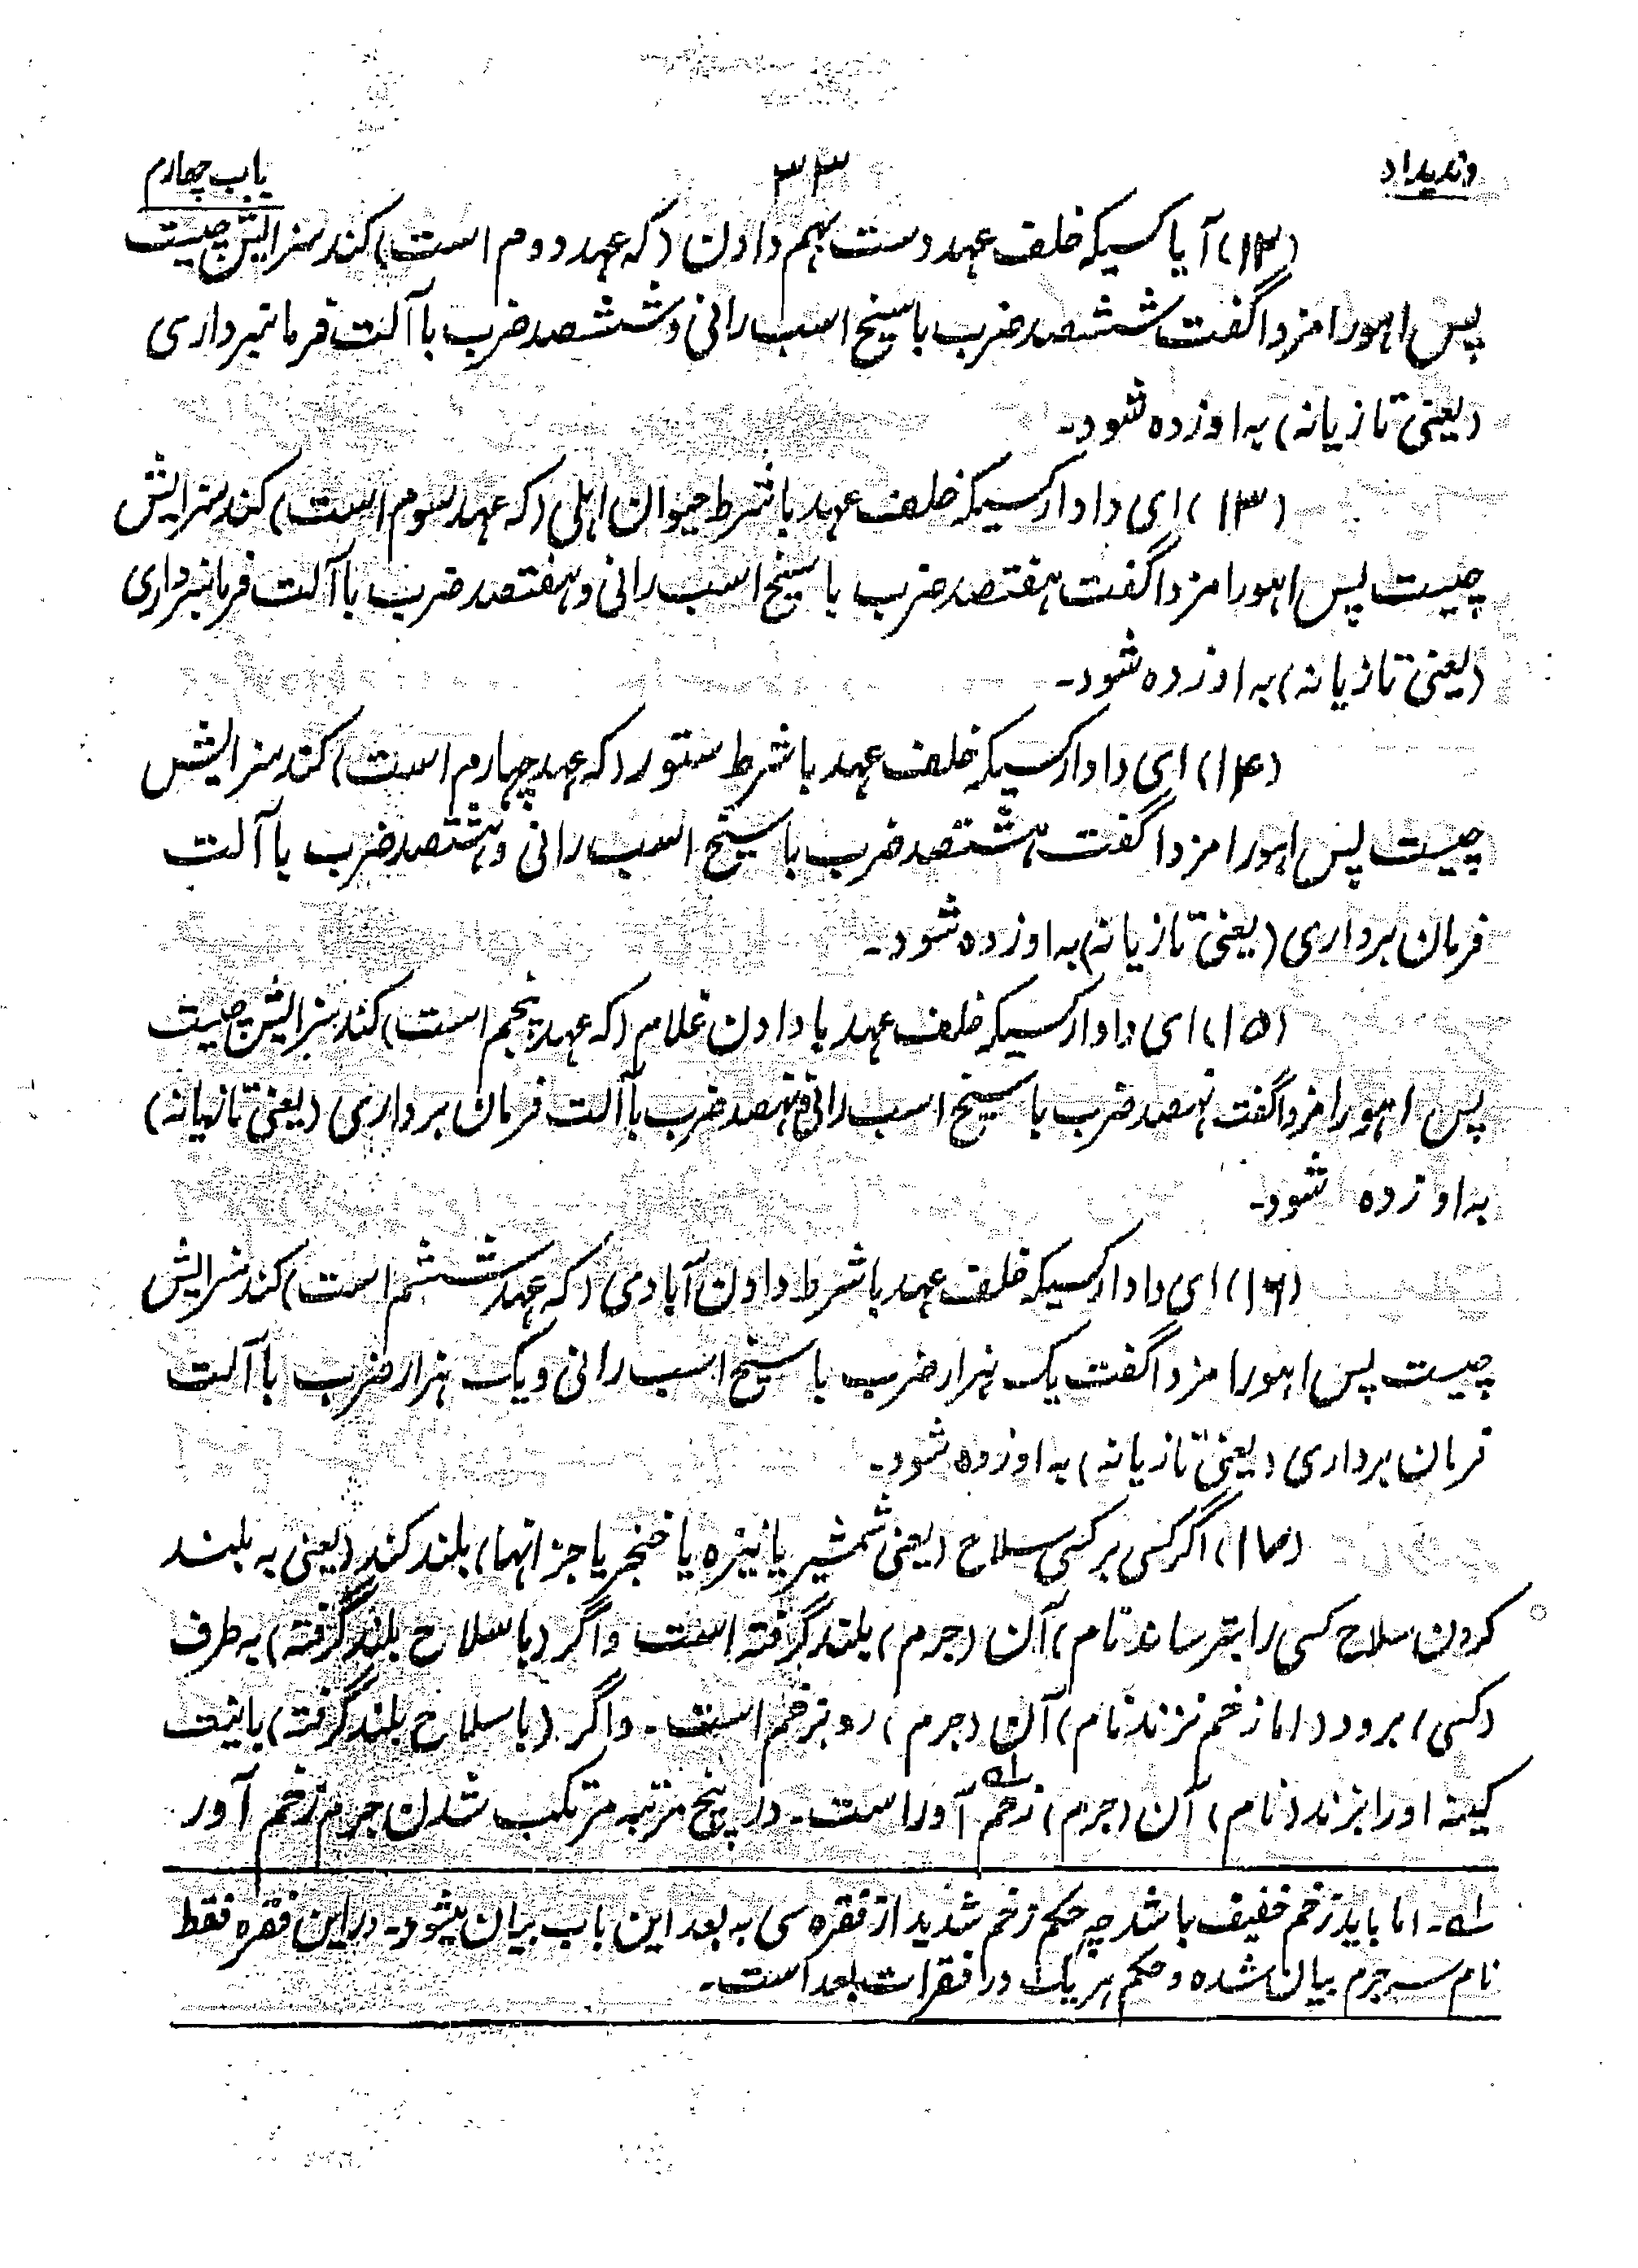 وندیداد
۳۳
باب چهارم
(۱۲) آیا کسیکه خلف عهد دست بهم دادن (که عهد دوم است) کند سزایش چیست
پس اهورامزدا گفت ششصد ضرب با سیخ اسب رانی و ششصد ضرب با آلت فرمانبرداری
(یعنی تازیانه) به او زده شود۔
(۱۳) ای دادار کسیکه خلف عهد با شرط حیوان اهلی (که عهد سوم است) کند سزایش
چیست پس اهورامزدا گفت هفتصد ضرب با سیخ اسب رانی و هفتصد ضرب با آلت فرمانبرداری
(یعنی تازیانه) به او زده شود۔
(۱۴) ای دادار کسیکه خلف عهد با شرط ستور (که عهد چهارم است) کند سزایش
چیست پس اهورامزدا گفت هشتصد ضرب با سیخ اسب رانی و هشتصد ضرب با آلت
فرمان برداری (یعنی تازیانه) به او زده شود۔
(۱۵) ای دادار کسیکه خلف عهد با دادن غلام (که عهد پنجم است) کند سزایش چیست
پس اهورامزدا گفت نهصد ضرب با سیخ اسب رانی و نهصد ضرب با آلت فرمان برداری (یعنی تازیانه)
به او زده شود۔
(۱۶) ای دادار کسیکه خلف عهد با شرط دادن آبادی (که عهد ششم است) کند سزایش
چیست پس اهورامزدا گفت یک هزار ضرب با سیخ اسب رانی و یک هزار ضرب با آلت
فرمان برداری (یعنی تازیانه) به او زده شود۔
(۱۷) اگر کسی بر کسی سلاح (یعنی شمشیر یا نیزه یا خنجر یا جز انها) بلند کند (یعنی به بلند
کردن سلاح کسی را بترساند نام) آن (جرم) بلند گرفته است واگر (با سلاح بلند گرفته) به طرف
(کسی) برود (اما زخم نزند نام) آن (جرم) رو بزخم است۔ واگر (با سلاح بلند گرفته) با نیت
کینه او را بزند (نام) آن (جرم) زخم آور است۔ در پنج مرتبه مرتکب شدن جرم زخم آور
له۔ اما باید زخم خفیف باشد چه حکم زخم شدید از فقره سی به بعد این باب بیان میشود۔ در این فقره فقط
نام سه جرم بیان شده و حکم هر یک در فقرات بعد است۔